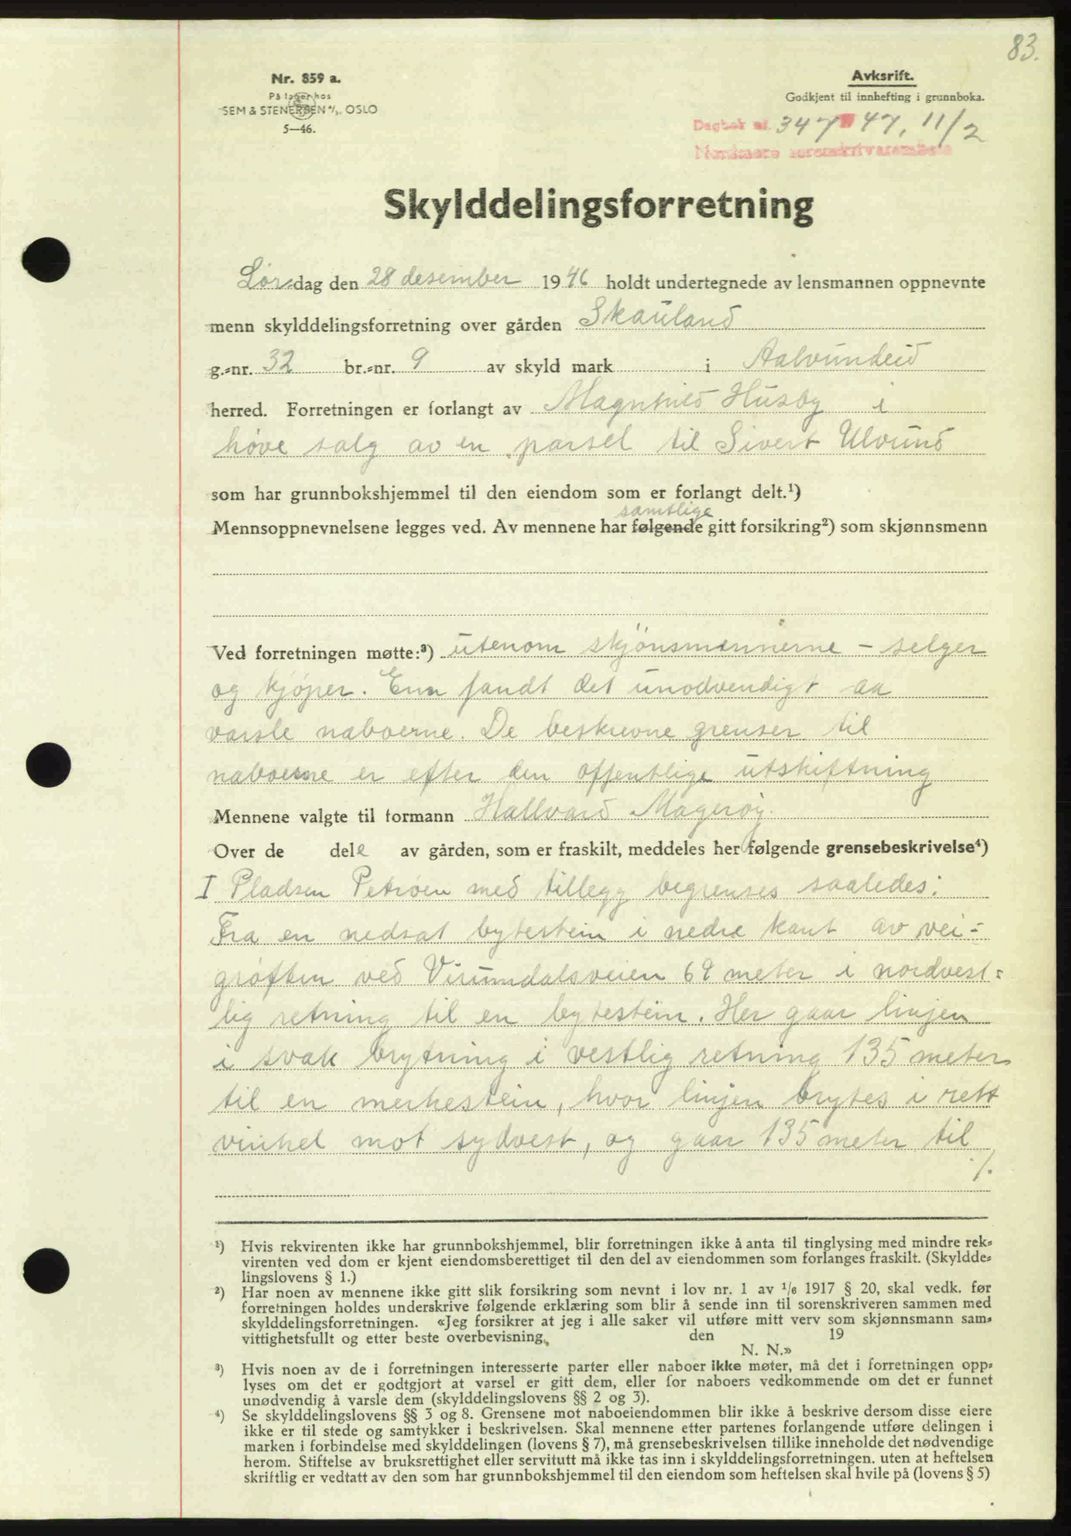 83.
Nr. 859 a.
På lager hos
SEM & STENERSEN A/S, OSLO
5—46.
Avksrift.
Godkjent til innhefting i grunnboka.
Dagbok nr. 347 47, 11/2
Nordmøre sorenskriverembete
Skylddelingsforretning
Lørdag den 28 desember 1946 holdt undertegnede av lensmannen oppnevnte
menn skylddelingsforretning over gården Skauland
g.=nr. 32 br.=nr. 9 av skyld mark i Aalvundeid
herred. Forretningen er forlangt av Magnhild Husby i
høve salg av en parsel til Sivert Ulvund
som har grunnbokshjemmel til den eiendom som er forlangt delt.¹)
samtlige
Mennsoppnevnelsene legges ved. Av mennene har følgende gitt forsikring²) som skjønnsmenn
Ved forretningen møtte:³) utenom skjönsmennerne – selger
og kjøper. Enn fandt det unodvendigt aa
varsle naboerne. De beskrevne grenser til
naboerne er efter den offentlige utskiftning
Mennene valgte til formann Hallvard Magerøy.
Over de dele av gården, som er fraskilt, meddeles her følgende grensebeskrivelse⁴)
I Pladsen Petrøen med tillegg begrenses saaledes:
Fra en nedsat bytestein i nedre kant av vei-
grøften ved Virumdalsveien 69 meter i nordvest=
lig retning til en bytestein. Her gaar linjen
i svak brytning i vestlig retning 135 meter
til en merkestein, hvor linjen brytes i rett
vinkel mot sydvest, og gaar 135 meter til
./.
¹) Hvis rekvirenten ikke har grunnbokshjemmel, blir forretningen ikke å anta til tinglysing med mindre rek=
virenten ved dom er kjent eiendomsberettiget til den del av eiendommen som forlanges fraskilt. (Skyldde=
lingslovens § 1.)
²) Har noen av mennene ikke gitt slik forsikring som nevnt i lov nr. 1 av 1/6 1917 § 20, skal vedk. før
forretningen holdes underskrive følgende erklæring som blir å sende inn til sorenskriveren sammen med
skylddelingsforretningen. «Jeg forsikrer at jeg i alle saker vil utføre mitt verv som skjønnsmann sam=
vittighetsfullt og etter beste overbevisning. den 19
N. N.»
³) Hvis noen av de i forretningen interesserte parter eller naboer ikke møter, må det i forretningen opp=
lyses om det er godtgjort at varsel er gitt dem, eller for naboers vedkommende om det er funnet
unødvendig å varsle dem (skylddelingslovens §§ 2 og 3).
⁴) Se skylddelingslovens §§ 3 og 8. Grensene mot naboeiendommen blir ikke å beskrive dersom disse eiere
ikke er til stede og samtykker i beskrivelsen. Skal mennene etter partenes forlangende utføre delingen i
marken i forbindelse med skylddelingen (lovens § 7), må grensebeskrivelsen tillike inneholde det nødvendige
herom. Stiftelse av bruksrettighet eller servitutt må ikke tas inn i skylddelingsforretningen, uten at heftelsen
skriftlig er vedtatt av den som har grunnbokshjemmel til den eiendom som heftelsen skal hvile på (lovens § 5)